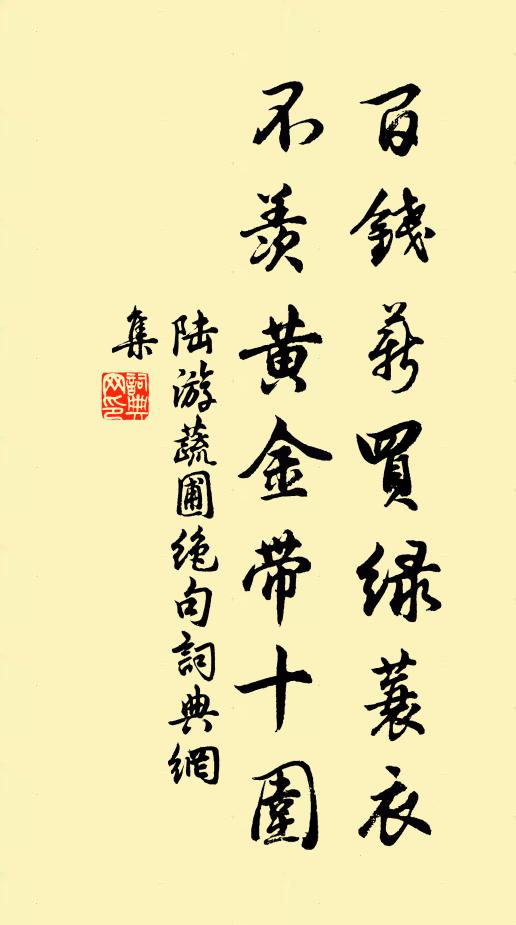 百錢新買綠蓑衣
不羨黃金帶十圍
陸游蔬圃绝句詞典網
集
詞典网印